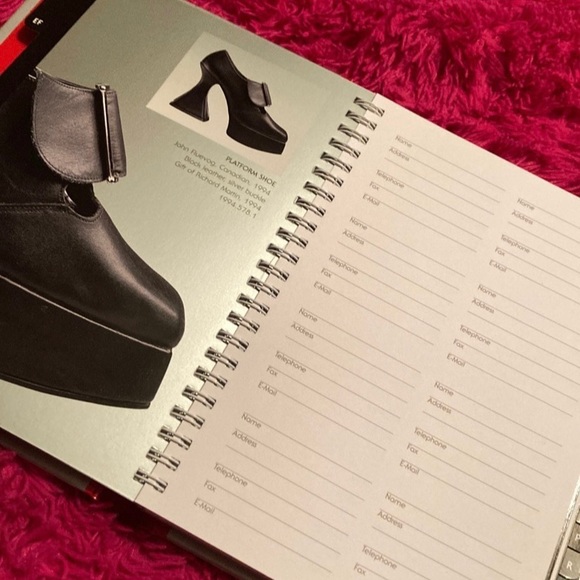 EF
PLATFORM SHOE
John Fluevog, Canadian, 1994
Black leather, silver buckle
Gift of Richard Martin, 1994
1994.578.1
Name
Address
Telephone
Fax
E-Mail
Name
Address
Telephone
Fax
E-Mail
Name
Address
Telephone
Fax
E-Mail
Name
Address
Telephone
Fax
E-Mail
Name
Address
Telephone
Fax
E-Mail
Name
Address
Telephone
Fax
E-Mail
Name
Address
Telephone
Fax
E-Mail
Name
Address
Telephone
Fax